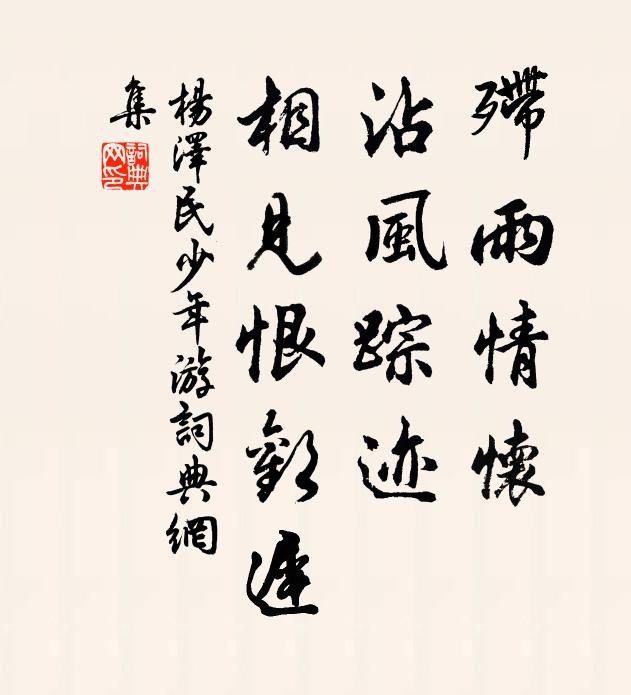 殢雨情懷
沾風踪迹
相見恨歡遲
楊澤民少年游詞典網
集
詞典網印